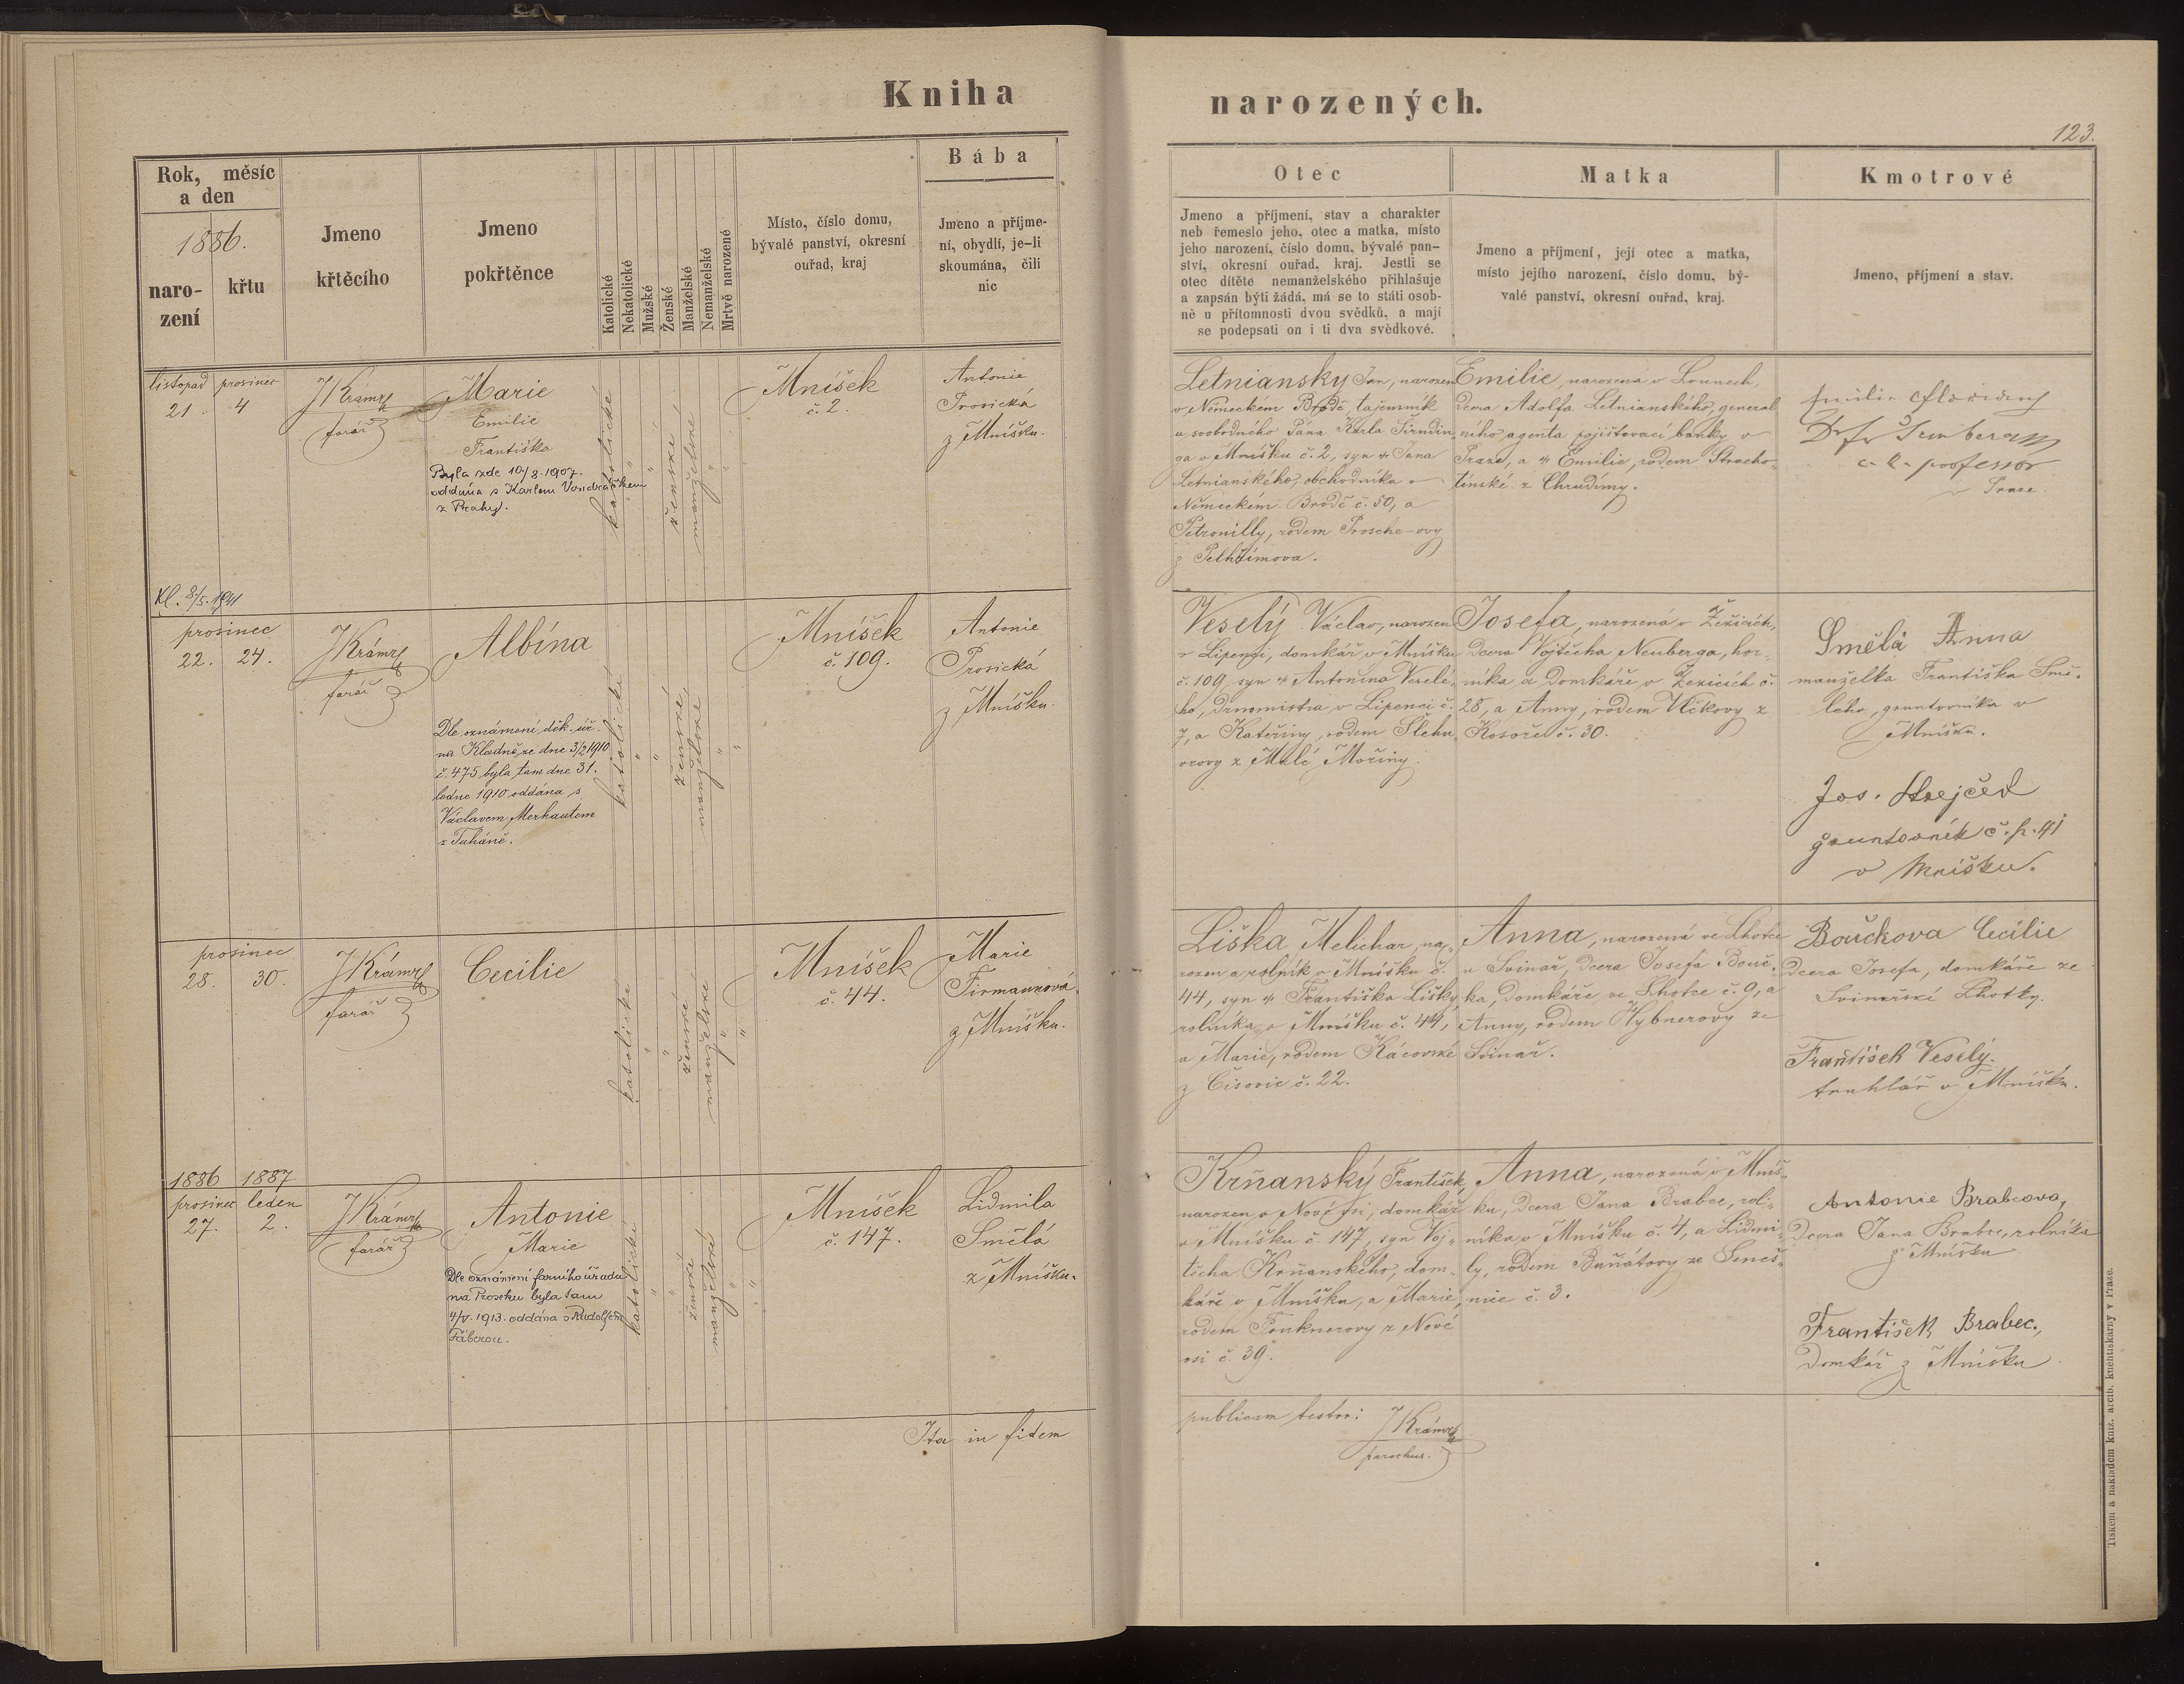 Kniha
narozených.
123.
Rok, měsíc
a den
1886.
naro-
zení
křtu
Jmeno
křtěcího
Jmeno
pokřtěnce
Katolické
Nekatolické
Mužské
Ženské
Manželské
Nemanželské
Mrtvě narozené
Místo, číslo domu,
bývalé panství, okresní
ouřad, kraj
Bába
Jmeno a příjme-
ní, obydlí, je-li
skoumána, čili
nic
Otec
Jmeno a příjmení, stav a charakter
neb řemeslo jeho, otec a matka, místo
jeho narození, číslo domu, bývalé pan-
ství, okresní ouřad, kraj. Jestli se
otec dítěte nemanželského přihlašuje
a zapsán býti žádá, má se to státi osob-
ně u přítomnosti dvou svědků, a mají
se podepsati on i ti dva svědkové.
Matka
Jmeno a příjmení, její otec a matka,
místo jejího narození, číslo domu, bý-
valé panství, okresní ouřad, kraj.
Kmotrové
Jmeno, příjmení a stav.
listopad prosinec
21. 4
JKrámrž
farář
Marie
Emilie
Františka
Byla zde 10/8.1907.
oddána s Karlem Vondráčkem
z Prahy.
katolické
"
"
ženské
manželské
"
"
Mníšek
č. 2.
Antonie
Prosická
z Mníšku.
Letniansky Jan, narozen
v Německém Brodě, tajemník
u svobodného Pána Karla
ga v Mníšku č. 2, syn † Jana
Letnianského, obchodníka v
Německém Brodě č. 50, a
Petronilly, rodem Prosche-ovy
z Pelhřimova.
Emilie, narozená v Lounech,
dcera Adolfa Letnianského, general
ního agenta pojišťovací banky v
Praze, a † Emilie, rodem Stracho-
tinské z Chrudimy.
c. k. professor
v Praze.
Kl. 8/5. 1941
prosinec
22. 24.
JKrámrž
farář
Albína
Dle oznámení děk. úř.
na Kladně, ze dne 3/2 1910
č. 475 byla tam dne 31.
ledna 1910 oddána s
Václavem Merhautem
z Tuháně.
katolické
"
"
ženské
manželské
"
"
Mníšek
č. 109.
Antonie
Prosická
z Mníšku.
Veselý Václav, narozen
v Lipenci, domkář v Mníšku
č. 109, syn † Antonína Veselé-
ho, drnomistra v Lipenci č.
7, a Kateřiny, rodem Šlehu-
orovy z Malé Mořiny.
Josefa, narozená v Žežicích,
dcera Vojtěcha Neuberga, hor-
níka a domkáře v Žežicích č.
28, a Anny, rodem Vlčkovy z
Kosoře č. 30.
Smělá Anna
manželka Františka Smě-
lého, gruntovníka v
Mníšku.
Jos. Strejček
gruntovník č. p. 41
v Mníšku.
prosinec
28. 30.
JKrámrž
farář
Cecilie
katolické
"
"
ženské
manželské
"
"
Mníšek
č. 44.
Marie
Firmanková
z Mníšku.
Liška Melichar, na-
rozen a rolník v Mníšku č.
44, syn † Františka Lišky,
rolníka v Mníšku č. 44,
a Marie, rodem Kácovské
z Čisovic č. 22.
Anna, narozená ve Lhotce
u Svinař, dcera Josefa Bouč-
ka, domkáře ve Lhotce č. 9, a
Anny, rodem Hybnerovy ze
Svinař.
Boučkova Cecilie
dcera Josefa, domkáře ze
Svinařské Lhotky.
František Veselý.
truhlář v Mníšku.
1886 1887
prosinec leden
27. 2.
JKrámrž
farář
Antonie
Marie
Dle oznámení farního úřadu
na Proseku byla tam
4/V. 1913. oddána s Rudolfem
Fáberou.
katolické
"
"
ženské
manželské
"
"
Mníšek
č. 147.
Lidmila
Smělá
z Mníšku.
Krňanský František,
narozen v Nové vsi, domkář
v Mníšku č. 147, syn Voj-
těcha Krňanského, dom-
káře v Mníšku, a Marie,
rodem Fouknerovy z Nové
vsi č. 39.
Anna, narozená v Mníš-
ku, dcera Jana Brabce, rol-
níka v Mníšku č. 4, a Lidmi-
ly, rodem Buňátovy ze Seneš-
nice č. 3.
Antonie Brabcova,
Dcera Jana Brabce, rolníka
z Mníšku
František Brabec.,
Domkář z Mníšku
Ita in fidem
publicam testor:
JKrámrž
parochus.
Tiskem a nákladem kníž. arcib. knehtiskárny v Praze.